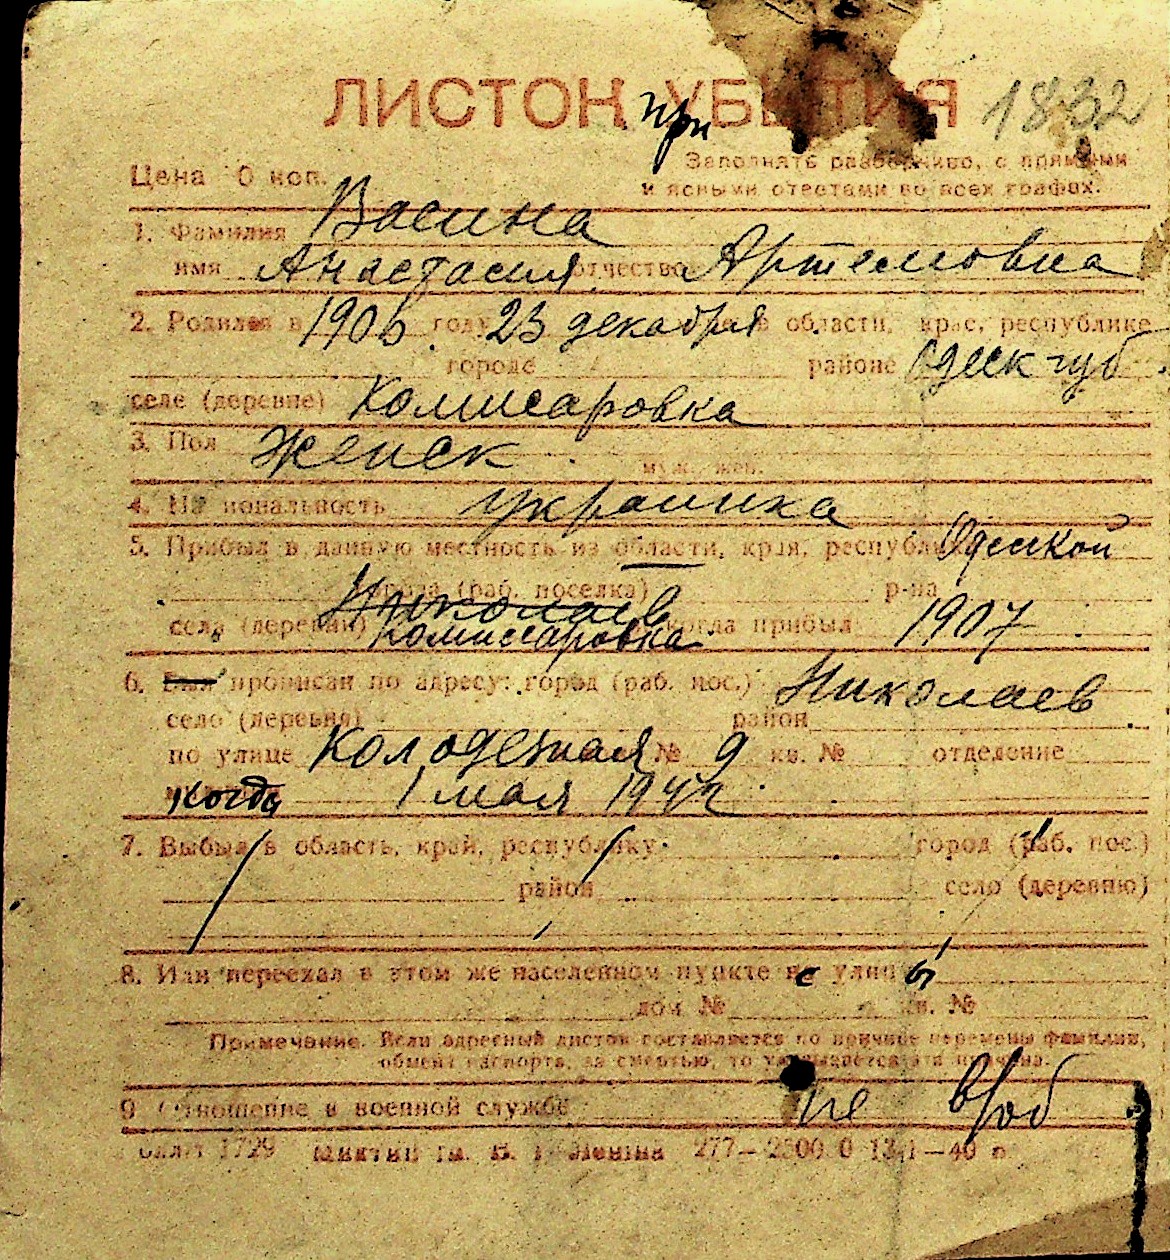 ЛИСТОК УБЫТИЯ 1832
при
Цена 0 коп. Заполнять разборчиво, с прямыми
и ясными ответами во всех графах.
Васина
1. Фамилия
имя Анастасия отчество Артемовна
2. Родился в 1906 году 23 декабря в области, крае, республике
городе районе Одеск губ.
селе (деревне) Комисаровка
3. Пол Женск
муж. жен.
4. Национальность украинка
5. Прибыл в данную местность из области, края, республики Одесской
города (раб. поселка) р-на
Николаев
села (деревни) Комиссаровка когда прибыл 1907
6. Был прописан по адресу: город (раб. пос.) Николаев
село (деревня) район
по улице Колодезная № 9 кв. № отделение
когда 1 мая 1942
7. Выбыл в область, край, республику город (раб. пос.)
район село (деревню)
8. Или переехал в этом же населенном пункте с улицы
дом № кв. №
Примечание. Если адресный листок составляется по причине перемены фамилии,
обмена паспорта, за смертью, то указывается эта причина.
9 Отношение к военной службе не в/об
1729 277— 2500 0 13/1—40 г.